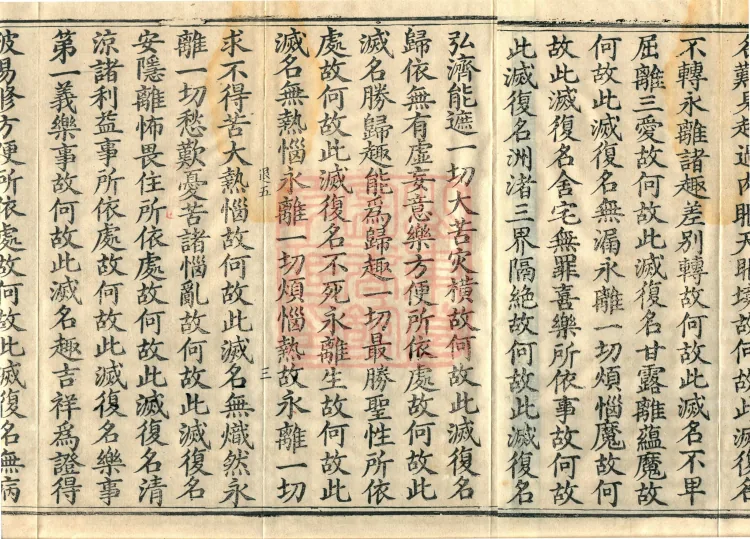 名難見超過肉眼天眼境故何故此滅復名
不轉永離諸趣差別轉故何故此滅名不卑
屈離三愛故何故此滅復名甘露離蘊魔故
何故此滅復名無漏永離一切煩惱魔故何
故此滅復名舍宅無罪喜樂所依事故何故
此滅復名洲渚三界隔絶故何故此滅復名
弘濟能遮一切大苦灾橫故何故此滅復名
歸依無有虛妄意樂方便所依處故何故此
滅名勝歸趣能爲歸趣一切最勝聖性所依
處故何故此滅復名不死永離生故何故此
滅名無熱惱永離一切煩惱熱故永離一切
退五 三
求不得苦大熱惱故何故此滅名無熾然永
離一切愁歎憂苦諸惱亂故何故此滅復名
安隱離怖畏住所依處故何故此滅復名清
涼諸利益事所依處故何故此滅復名樂事
第一義樂事故何故此滅名趣吉祥爲證得
彼易修方便所依處故何故此滅復名無病